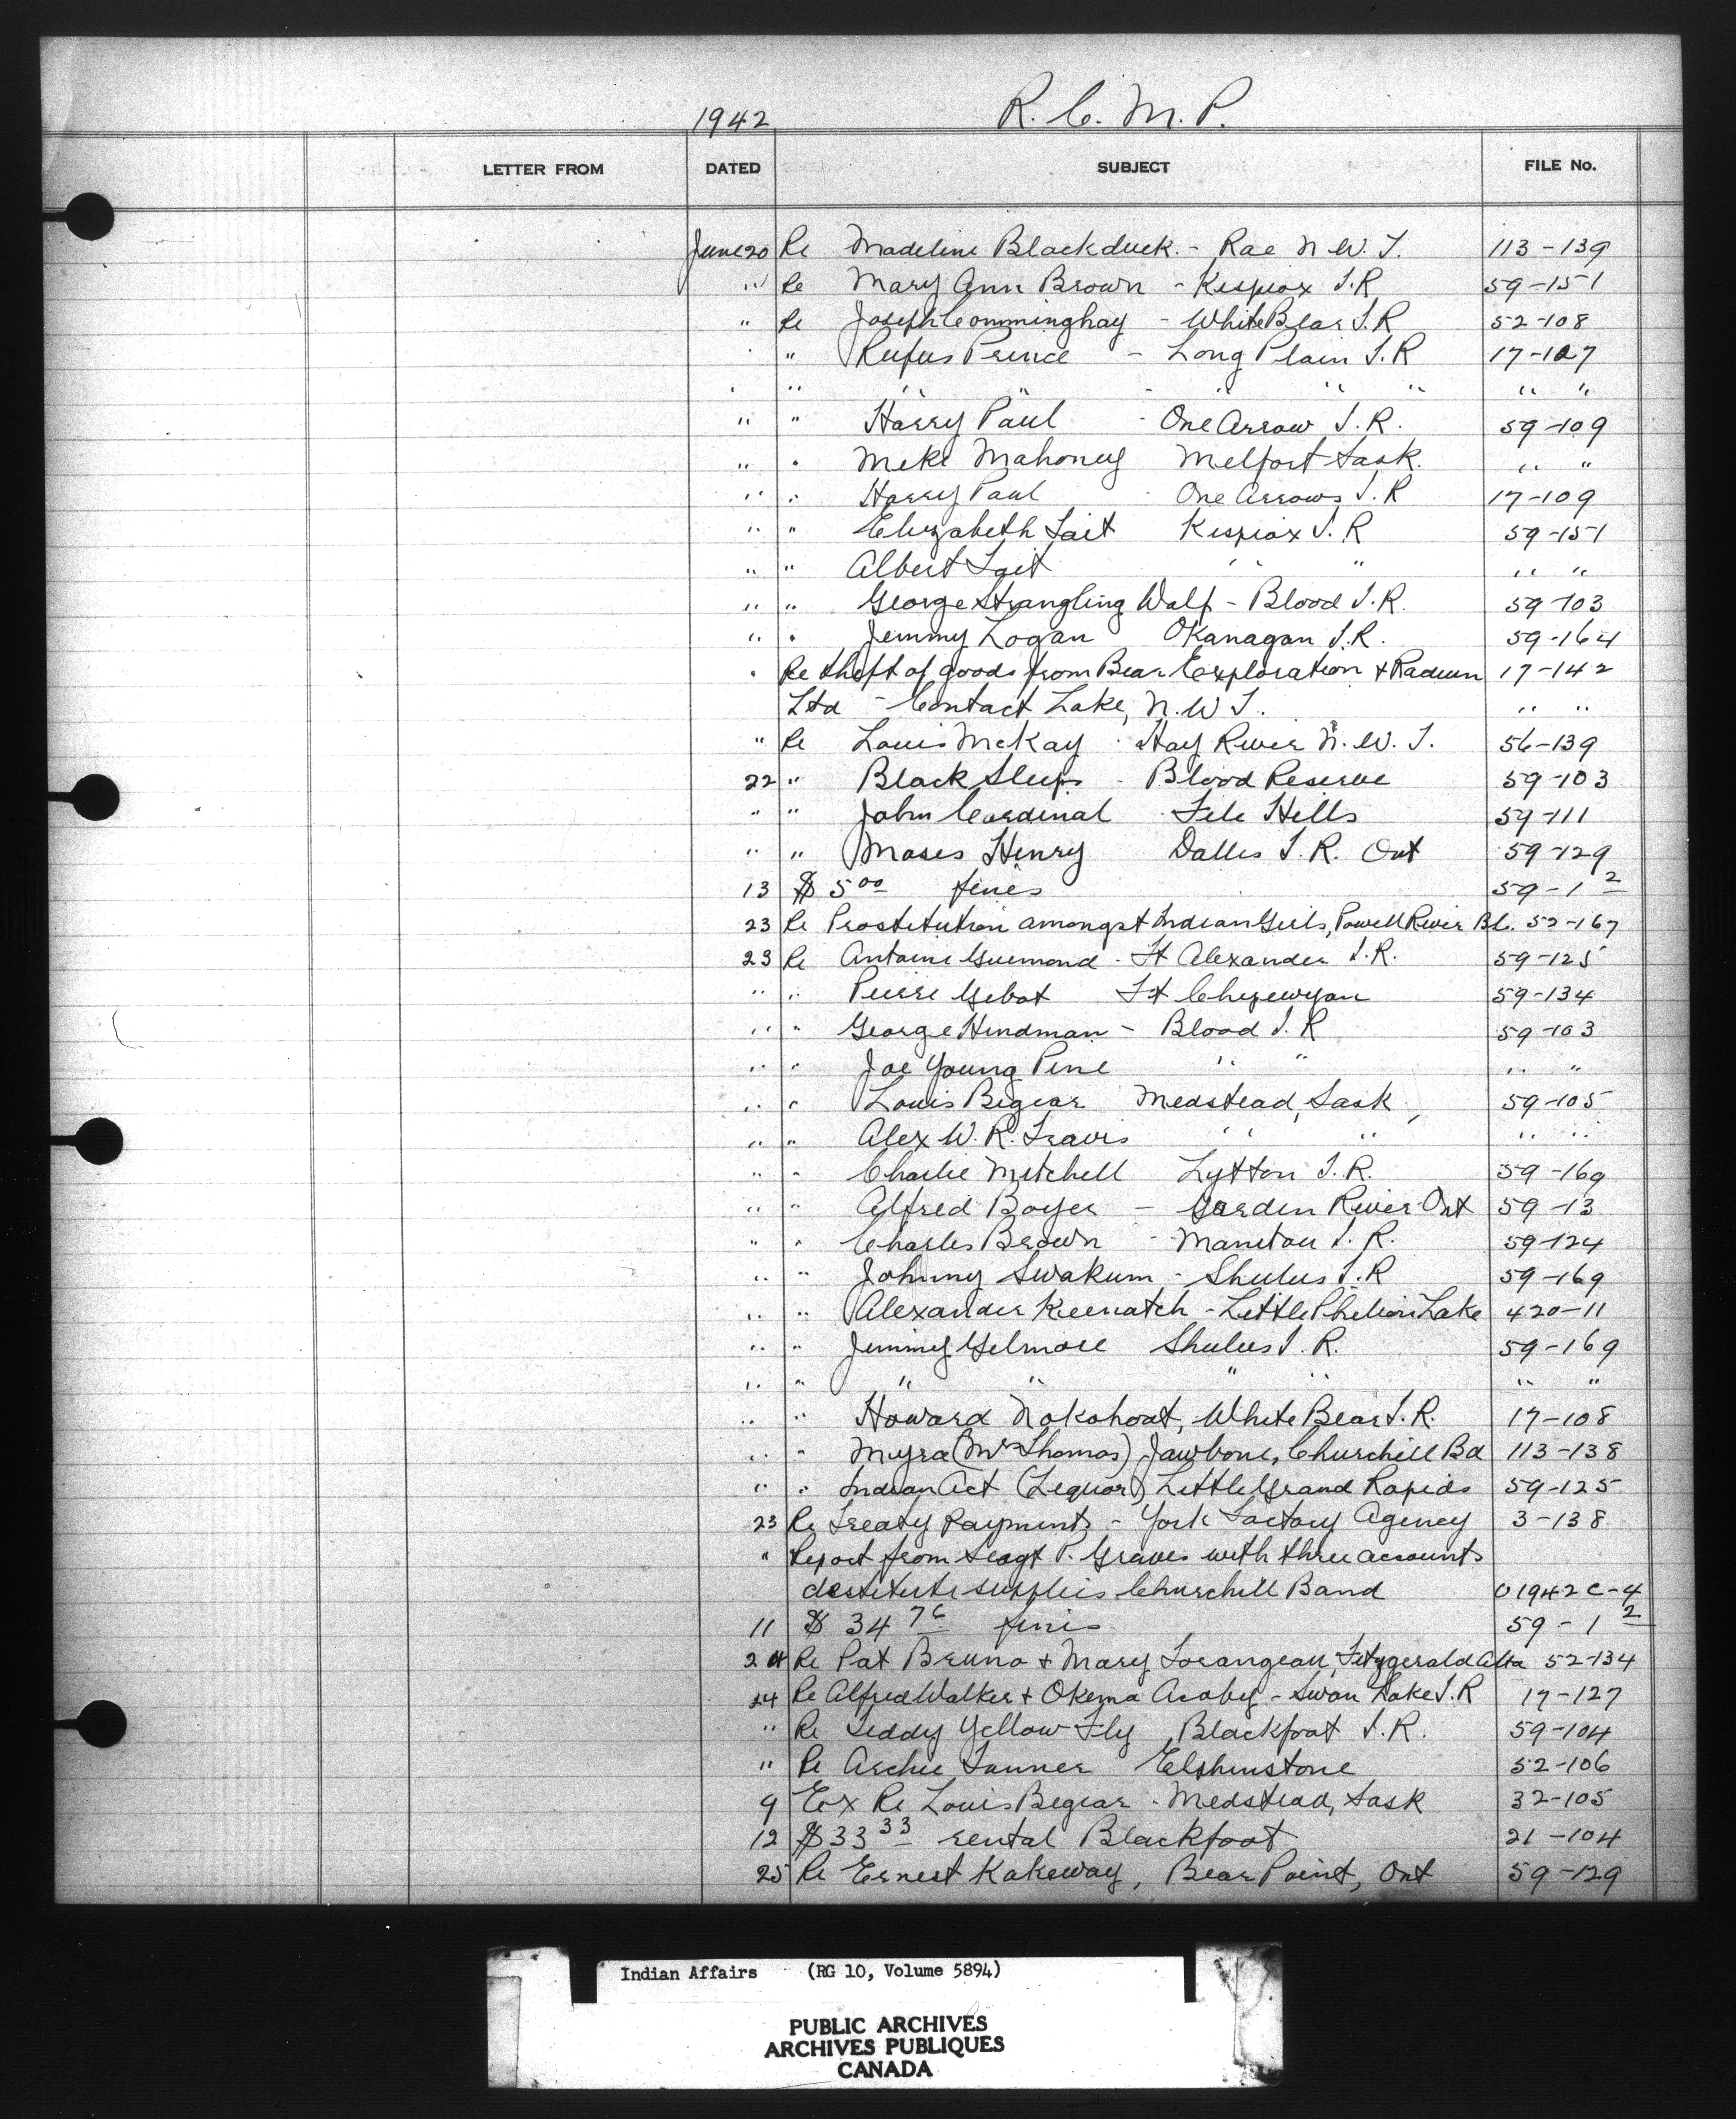 1942 R. C. M. P.
LETTER FROM DATED SUBJECT FILE No.
June 20 Re Madeline Blackduck. - Rae N. W. T. 113-139
" Re Mary Ann Brown - Kispiox I.R 59-151
" Re Joseph - White Bear I.R 52-108
" Rufus Prince - Long Plain I.R 17-127
" " " " - " " " " "
" " Harry Paul - One Arrow I.R. 59-109
" " Mike Mahoney Melfort Sask. " "
" " Harry Paul - One Arrows I.R 17-109
" " Elizabeth Tait Kispiox I.R 59-151
" " Albert Tait " " " "
" " George Strangling Wolf - Blood I.R. 59-103
" " Jimmy Logan Okanagan I.R. 59-164
" Re theft of goods from Bear Exploration & Radium 17-142
Ltd - Contact Lake, N.W.T. " "
" Re Louis McKay - Hay River N.W.T. 56-139
22 " Black Sleeps - Blood Reserve 59-103
" " John Cardinal File Hills 59-111
" " Moses Henry Dalles I.R. Ont 59-129
13 $ 5 00 fines 59-1 2
23 Re Prostitution amongst Indian Girls, Powell River B.C. 52-167
23 Re Antoine Guimond - Ft Alexander I.R. 59-125
" " Pierre Gibot Ft Chipewyan 59-134
" " George Hindman - Blood I.R 59-103
" " Joe Young Pine " " " "
" " Louis Bigear Medstead, Sask, 59-105
" " Alex W. R. Travis " " " "
" " Charlie Mitchell Lytton I.R. 59-169
" " Alfred Boyer - Garden River Ont 59-13
" " Charles Brown - Manitou I.R. 59-124
" " Johnny Swakum - Shulus I.R 59-169
" " Alexander Keenatch - Little Lake 420-11
" " Jimmy Gilmore Shulus I.R. 59-169
" " " " " " " "
" " Howard Nokohoat, White Bear I.R. 17-108
" " Myra (Mrs Thomas) Jawbone, Churchill Bd 113-138
" " Indian Act (Liquor) Little Grand Rapids 59-125
23 Re Treaty Payments - York Factory Agency 3-138
" Report from Seagt P. Graves with three accounts
destitute supplies Churchill Band 0 1942 C-4
11 $ 34 76 fines 59-1 2
24 Re Pat Bruno & Mary Lorangeau, Fitzgerald Alta 52-134
24 Re Alfred Walker & Okema Acoby - Swan Lake I.R 17-127
" Re Teddy Yellow Fly Blackfoot I.R. 59-104
" Re Archie Tanner Elphinstone 52-106
9 Ex Re Louis Begear - Medstead, Sask 32-105
12 $ 33 33 rental Blackfoot 21-104
25 Re Ernest Kakeway, Bear Point, Ont 59-129
Indian Affairs (RG 10, Volume 5894)
PUBLIC ARCHIVES
ARCHIVES PUBLIQUES
CANADA